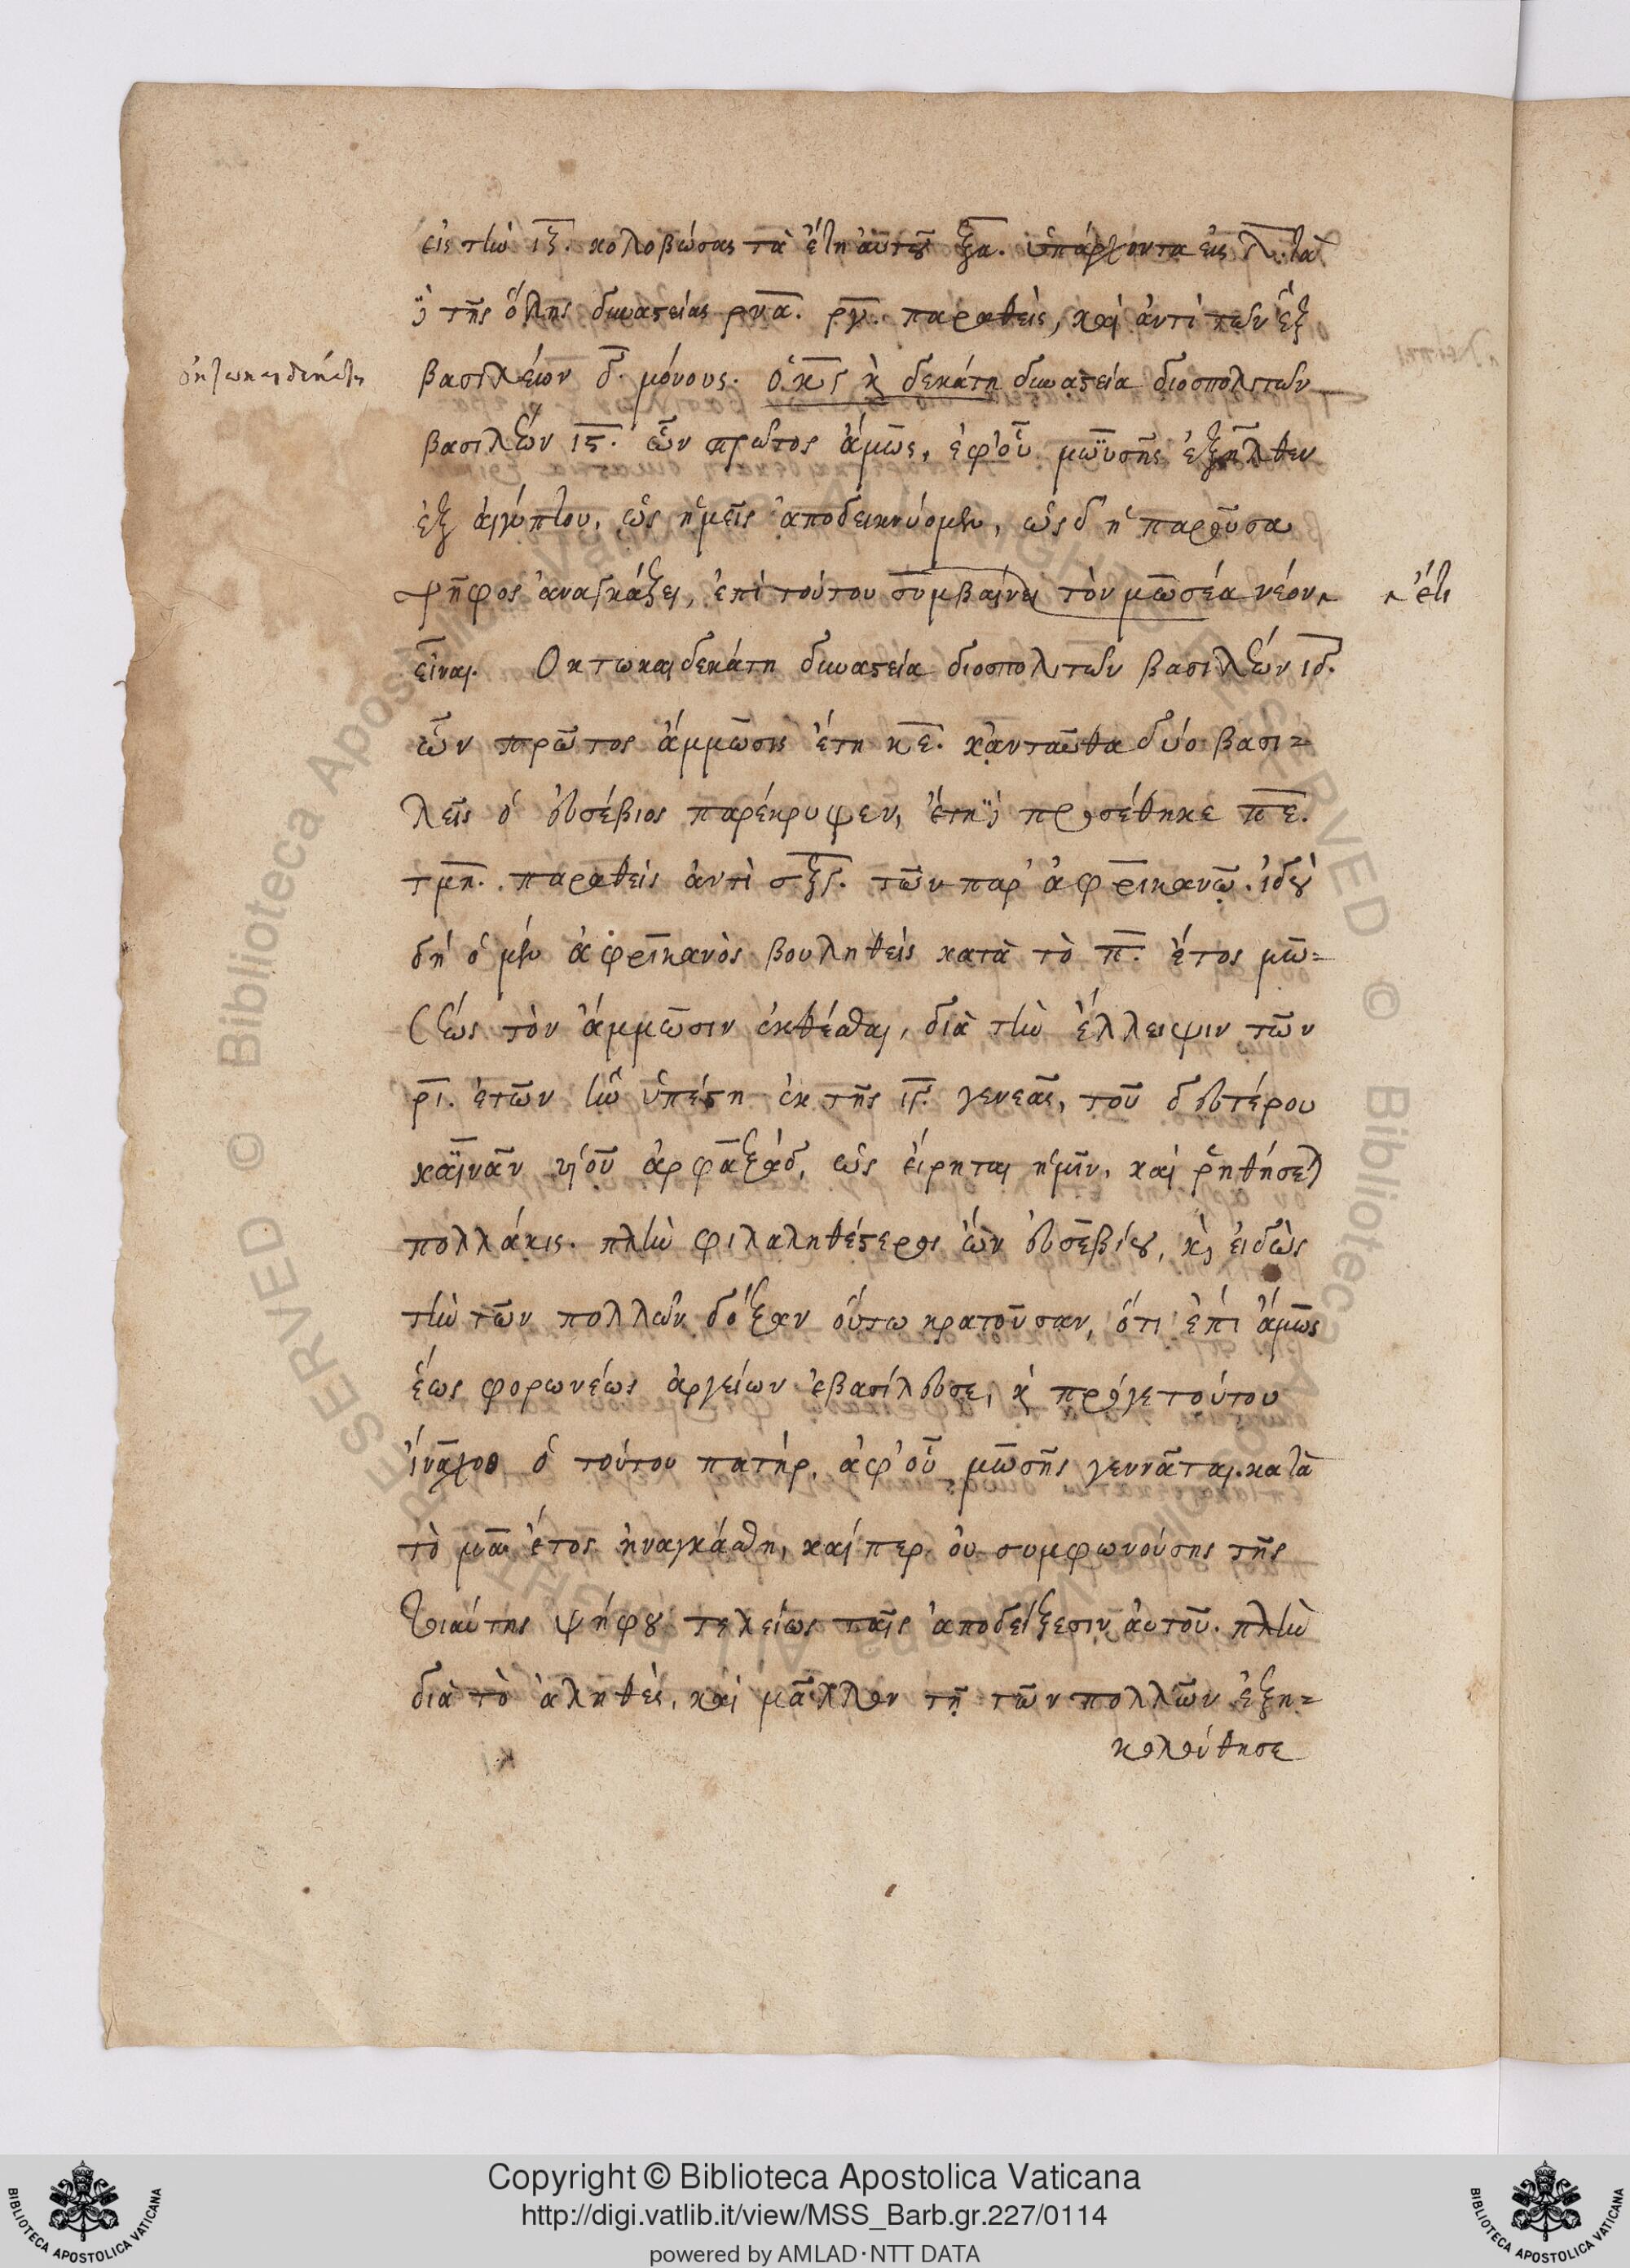 εἰς τὴν ιζ. κολοβώσας τὰ ἔτη αὐτοῦ ξα. ὑπάρχοντα εἰς λ. τὰ
δὲ τῆς ὅλης δυναστείας ρνα. ργ. παραθεὶς, καὶ ἀντὶ τῶν ἓξ
ὀκτωκαιδεκάτη
βασιλέων δ. μόνους. ὀκτ κ δεκάτη δυναστεία διοσπολιτῶν
βασιλέων ις. ὧν πρῶτος ἄμως, ἐφ' οὗ μωϋσῆς ἐξῆλθεν
ἐξ αἰγύπτου, ὡς ἡμεῖς ἀποδεικνύομεν, ὡς δ' ἡ παροῦσα
ψῆφος ἀναγκάζει, ἐπὶ τούτου συμβαίνει τὸν μωσέα νέον
ἔτι
εἶναι. Οκτωκαιδεκάτη δυναστεία διοσπολιτῶν βασιλέων ιδ.
ὧν πρῶτος ἄμμωσις ἔτη κε. κἀνταῦθα δύο βασι=
λεῖς ὁ εὐσέβιος παρέκρυψεν, ἔτη δὲ προσέθηκε πε.
τμη. παραθεὶς ἀντὶ σξγ. τῶν παρ' ἀφρικανῷ. ἰδοὺ
δὴ ὁ μὲν ἀφρικανὸς βουληθεὶς κατὰ τὸ π. ἔτος μω=
σέως τὸν ἄμμωσιν ἐκθέσθαι, διὰ τὴν ἔλλειψιν τῶν
ρι. ἐτῶν ἣν ὑπέστη ἐκ τῆς ιγ. γενεᾶς, τοῦ δευτέρου
καϊνᾶν υἱοῦ ἀρφαξάδ, ὡς εἴρηται ἡμῖν, καὶ ῥηθήσεται
πολλάκις. πλὴν φιλαληθέστερος ὢν εὐσεβίου, κ εἰδὼς
τὴν τῶν πολλῶν δόξαν οὕτω κρατοῦσαν, ὅτι ἐπὶ ἄμως
ἕως φορωνέως ἀργείων ἐβασίλευσε, κ πρόγε τούτου
ἴναχος ὁ τούτου πατὴρ, ἀφ' οὗ μωσῆς γεννᾶται. κατὰ
τὸ μα ἔτος ἠναγκάσθη, καίπερ οὐ συμφωνούσης τῆς
τοιαύτης ψήφου τελείως ταῖς ἀποδείξεσιν αὐτοῦ. πλὴν
διὰ τὸ ἀληθὲς, καὶ μᾶλλον τῇ τῶν πολλῶν ἐξη=
κολούθησε
Copyright © Biblioteca Apostolica Vaticana
http://digi.vatlib.it/view/MSS_Barb.gr.227/0114
powered by AMLAD·NTT DATA
BIBLIOTECA APOSTOLICA VATICANA
BIBLIOTECA APOSTOLICA VATICANA